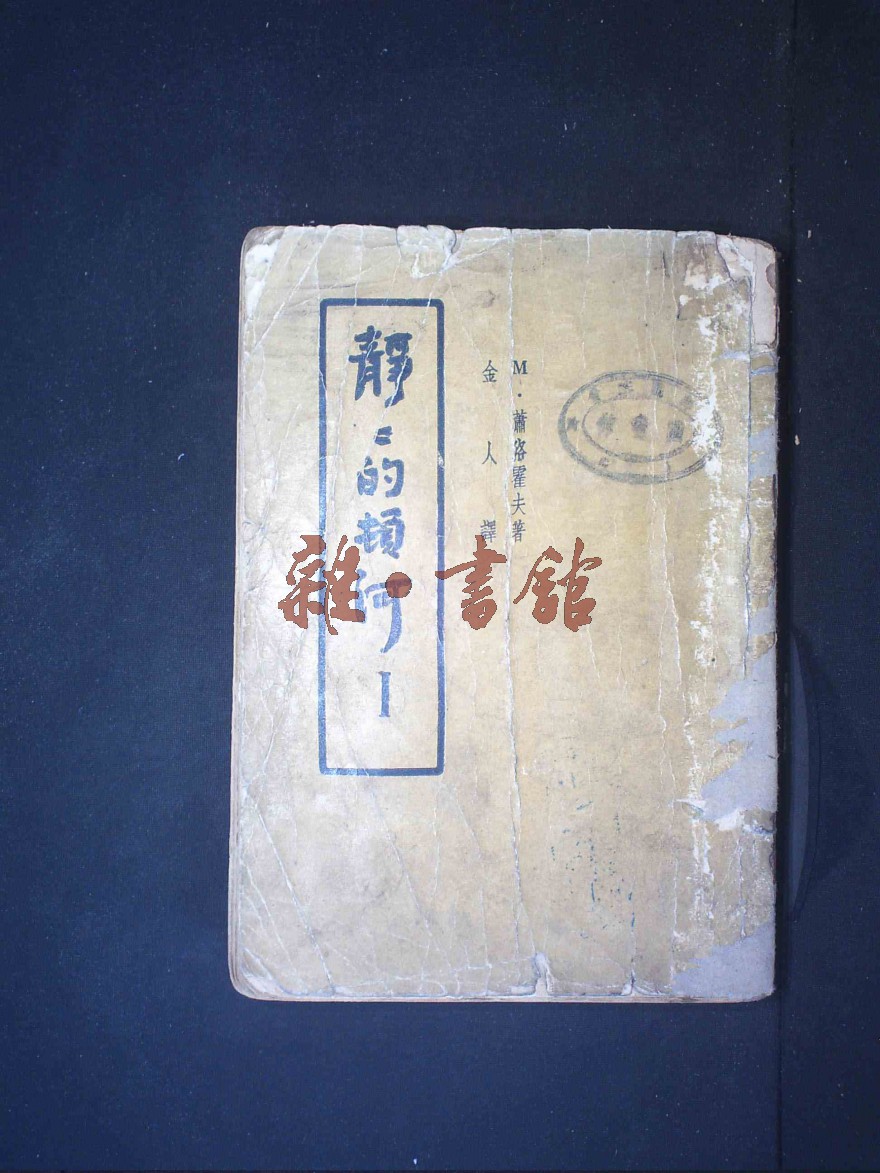 M·蕭洛霍夫著
金人譯
靜〻的頓河 I
雜·書館